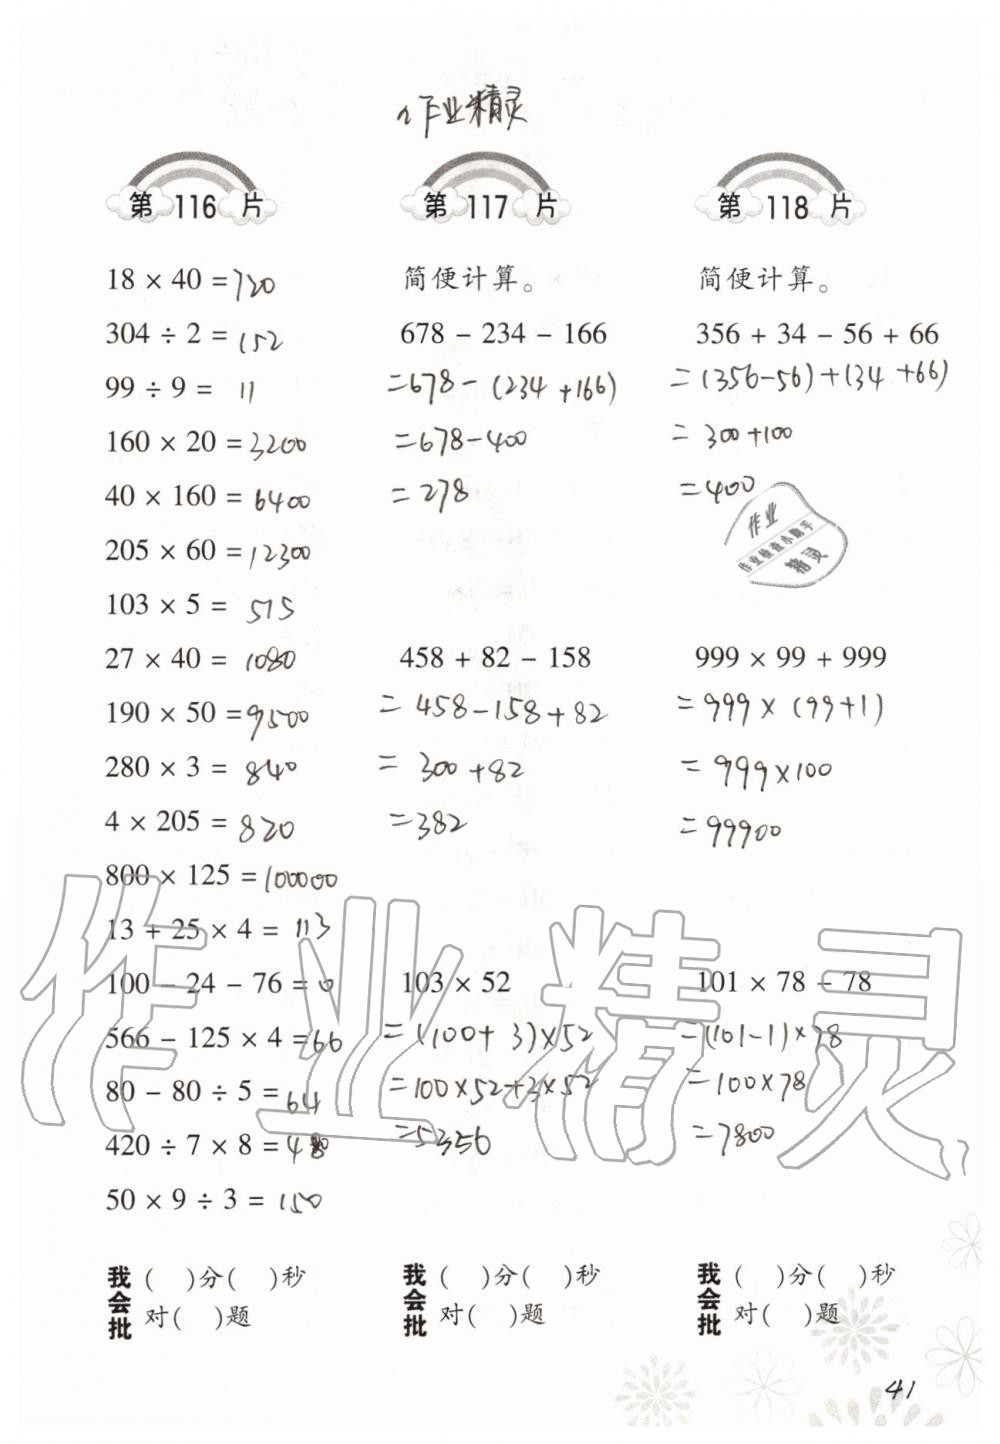 作业精灵
第116片
18 × 40 = 720
304 ÷ 2 = 152
99 ÷ 9 = 11
160 × 20 = 3200
40 × 160 = 6400
205 × 60 = 12300
103 × 5 = 515
27 × 40 = 1080
190 × 50 = 9500
280 × 3 = 840
4 × 205 = 820
800 × 125 = 100000
13 + 25 × 4 = 113
100 - 24 - 76 = 0
566 - 125 × 4 = 66
80 - 80 ÷ 5 = 64
420 ÷ 7 × 8 = 480
50 × 9 ÷ 3 = 150
我会批
(  )分(  )秒
对(  )题
第117片
简便计算。
678 - 234 - 166
=678-(234+166)
=678-400
=278
458 + 82 - 158
=458-158+82
=300+82
=382
103 × 52
=(100+3)×52
=100×52+3×52
=5356
我会批
(  )分(  )秒
对(  )题
第118片
简便计算。
356 + 34 - 56 + 66
=(356-56)+(34+66)
=300+100
=400
作业
作业检查小助手
精灵
999 × 99 + 999
=999×(99+1)
=999×100
=99900
101 × 78 - 78
=(101-1)×78
=100×78
=7800
我会批
(  )分(  )秒
对(  )题
作业精灵
41